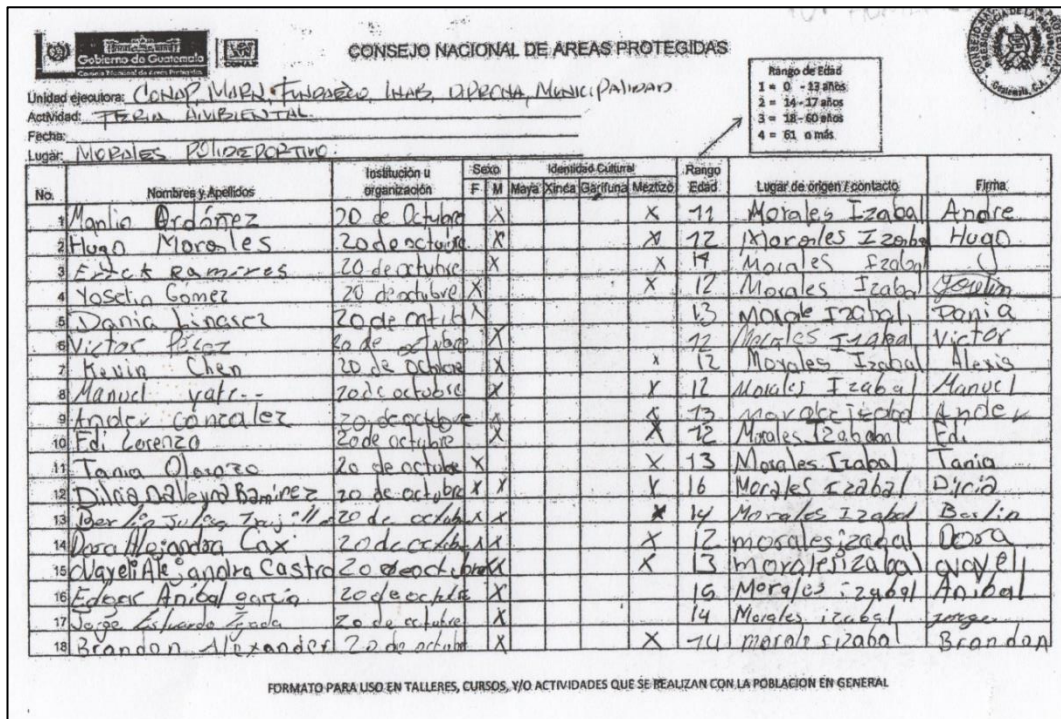 Gobierno de Guatemala
CONSEJO NACIONAL DE AREAS PROTEGIDAS
Rango de Edad
1 = 0 - 13 años
2 = 14 - 17 años
3 = 18 - 60 años
4 = 61 o más
Unidad ejecutora: CONAP, MARN, FUNDAECO, INAB, MUNICIPALIDAD
Actividad: FERIA AMBIENTAL
Fecha:
Lugar: MORALES POLIDEPORTIVO.
No. Nombres y Apellidos Institución u organización Sexo F M Identidad Cultural Maya Xinca Garifuna Meztizo Rango Edad Lugar de origen / contacto Firma
1 Manlio Ordóñez 20 de Octubre X X 11 Morales Izabal Andre
2 Hugo Morales 20 de octubre X X 12 Morales Izabal Hugo
3 Erick Ramires 20 de octubre X X 14 Morales Izabal
4 Yoselin Gomez 20 de octubre X X 12 Morales Izabal Yoselin
5 Dania Linarez 20 de X 13 Morale Izabal Dania
6 Victor 20 de octubre X 12 Morales Izabal Victor
7 Kevin Chen 20 de octubre X x 12 Morales Izabal Alexis
8 Manuel 20 de octubre X X 12 Morales Izabal Manuel
9 Ander Gonzalez 20 de octubre x X 13 Morales Ander
10 Edi Lorenzo 20 de octubre X X 12 Morales Edi
11 Tania 20 de octubre X X 13 Morales Izabal Tania
12 Ramirez 20 de octubre X X X 16 Morales Izabal Dircia
13 20 de octubre X X X 14 Morales Izabal Berlin
14 Dora Alejandra Cax 20 de octubre X X X 12 morales izabal Dora
15 Alejandra Castro 20 de octubre X X X 13 morales izabal
16 Edgar Anibal garcia 20 de octubre X 15 Morales izabal Anibal
17 Jorge Estuardo 20 de octubre X 14 Morales izabal jorge
18 Brandon Alexander 20 de octubre X X 14 morales izabal Brandon
FORMATO PARA USO EN TALLERES, CURSOS, Y/O ACTIVIDADES QUE SE REALIZAN CON LA POBLACION EN GENERAL